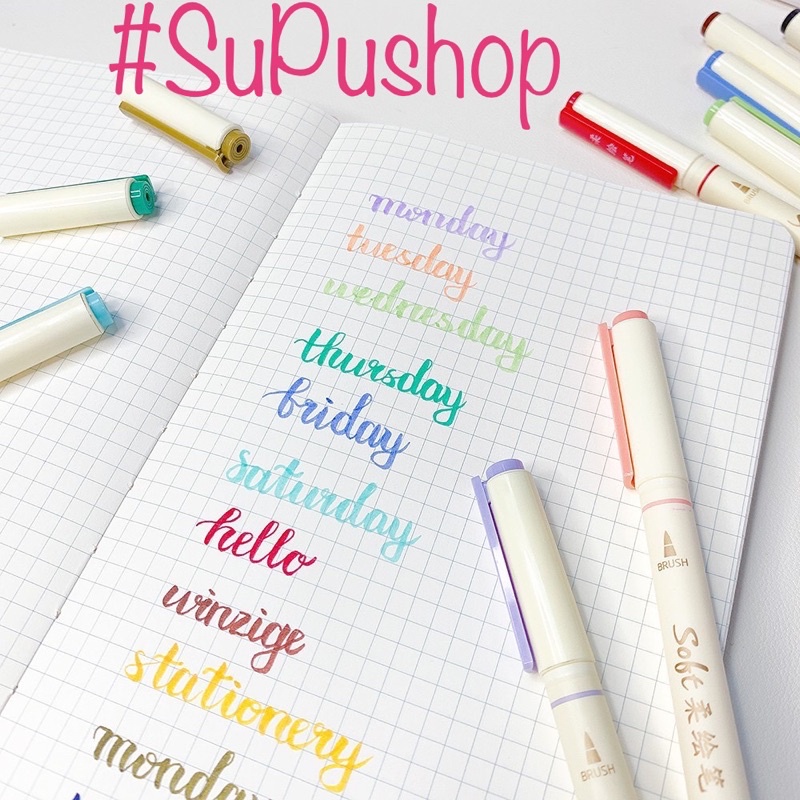 #SuPushop
monday
tuesday
wednesday
thursday
friday
saturday
hello
winzige
stationery
monday
BRUSH
Soft 柔绘笔
BRUSH